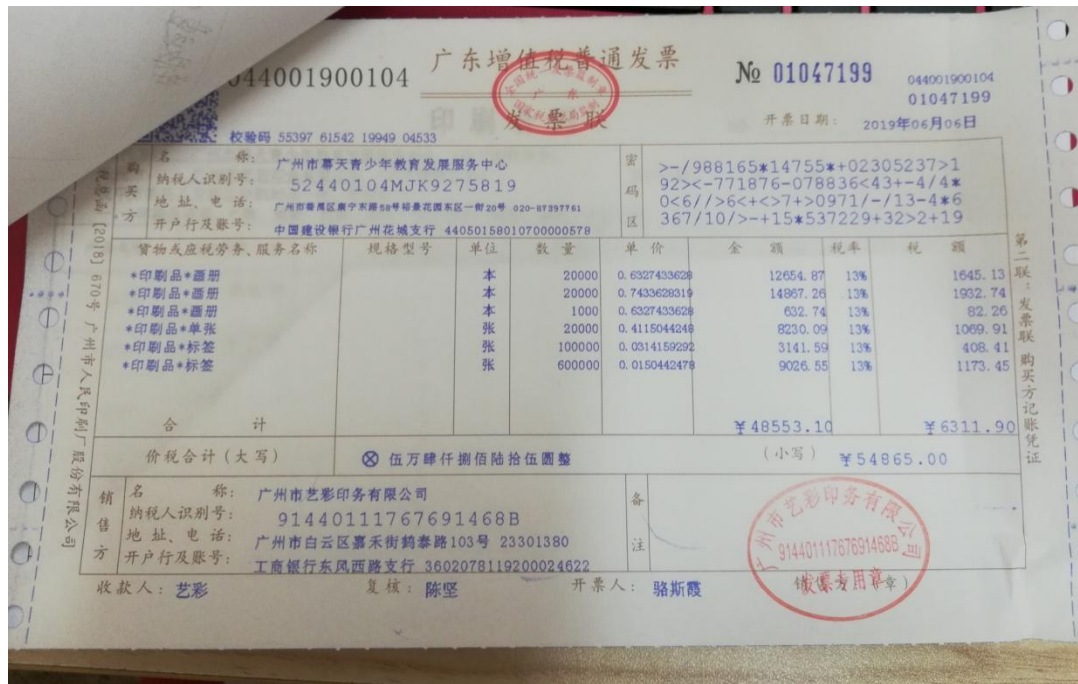 044001900104
广东增值税普通发票
发票联
全国统一发票监制章
广东
№ 01047199
044001900104
01047199
开票日期: 2019年06月06日
校验码 55397 61542 19949 04533
购买方
名称: 广州市幕天青少年教育发展服务中心
纳税人识别号: 52440104MJK9275819
地址、电话: 广州市番禺区康宁东路58号裕景花园东区一街20号 020-87397761
开户行及账号: 中国建设银行广州花城支行 44050158010700000578
密码区
>-/988165*14755*+02305237>1
92><-771876-078836<43+-4/4*
0<6//>6<+<>7+>0971/-/13-4*6
367/10/>-+15*537229+32>2+19
货物或应税劳务、服务名称 规格型号 单位 数量 单价 金额 税率 税额
*印刷品*画册 本 20000 0.6327433628 12654.87 13% 1645.13
*印刷品*画册 本 20000 0.7433628319 14867.26 13% 1932.74
*印刷品*画册 本 1000 0.6327433628 632.74 13% 82.26
*印刷品*单张 张 20000 0.4115044248 8230.09 13% 1069.91
*印刷品*标签 张 100000 0.0314159292 3141.59 13% 408.41
*印刷品*标签 张 600000 0.0150442478 9026.55 13% 1173.45
合计 ¥48553.10 ¥6311.90
价税合计(大写) ⊗ 伍万肆仟捌佰陆拾伍圆整 (小写) ¥54865.00
销售方
名称: 广州市艺彩印务有限公司
纳税人识别号: 91440111767691468B
地址、电话: 广州市白云区嘉禾街鹤泰路103号 23301380
开户行及账号: 工商银行东风西路支行 3602078119200024622
备注
收款人: 艺彩 复核: 陈坚 开票人: 骆斯霞 销售方:(章)
广州市艺彩印务有限公司
91440111767691468B
发票专用章
第二联:发票联 购买方记账凭证
[2018] 670号 广州市人民印刷厂股份有限公司